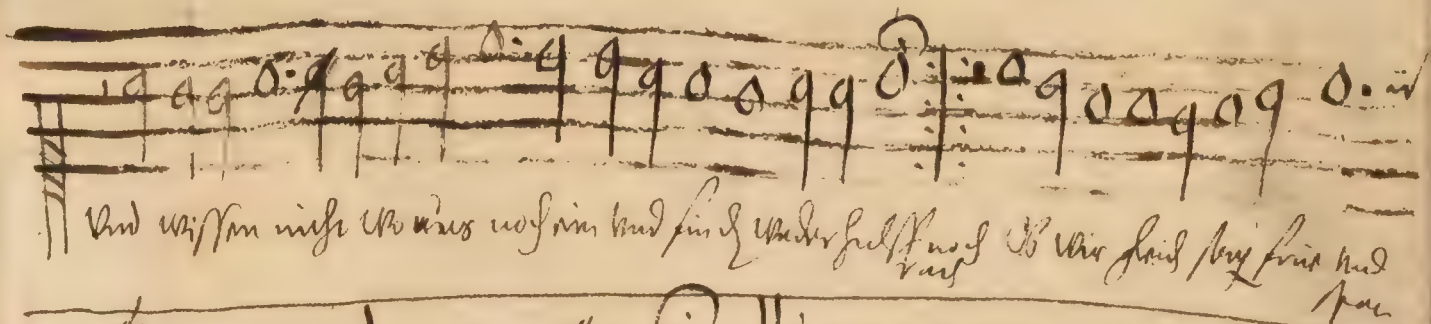 Vnd wissen nicht wo aus noch ein vnd finden weder hulff noch Ob wir gleich sorg frue vnd
rath
spat